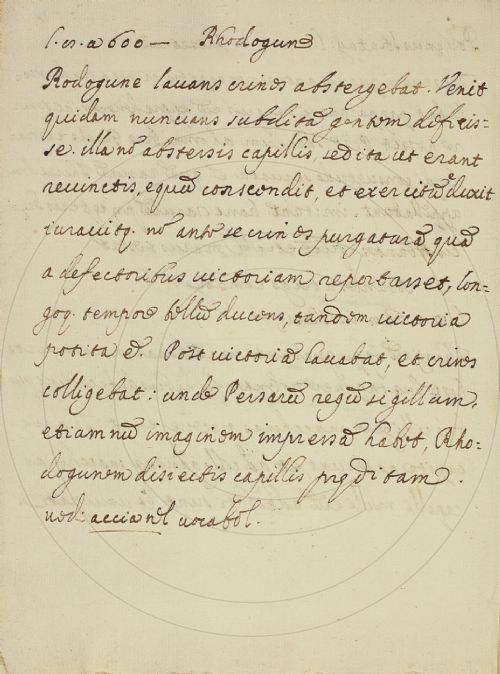 l. cr. a 600 — Rhodogune
Rodogune lavans crines abstergebat. Venit
quidam nuncians subditā gentem defecis-
se. illa nō abstersis capillis, sed ita ut erant
revinctis, equū conscendit, et exercitū eduxit
iuravitq. nō ante se crines purgaturā, quā
a defectoribus victoriam reportasset, lon-
goq. tempore bellū ducens, tandem victoria
potita ē. Post victoriā lavabat, et crines
colligebat: unde Persarū regū sigillum,
etiam nū imaginem impressā habet, Rho-
dogunem disiectis capillis pręditam.
ved: accia nel vocabol.